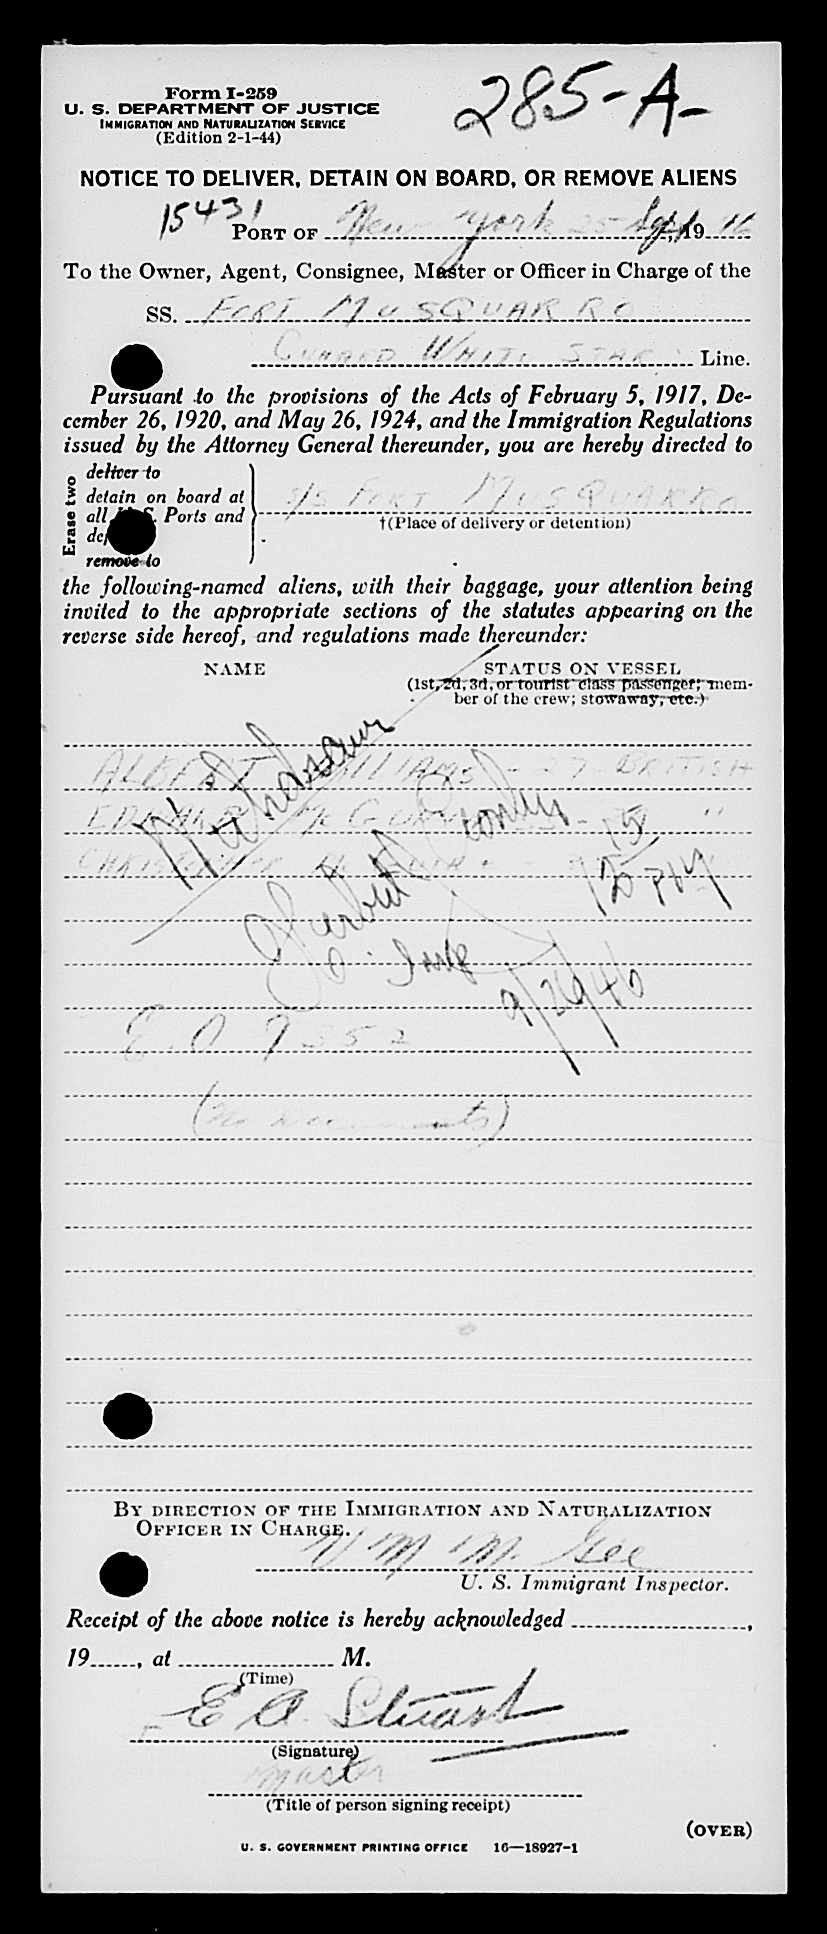 Form I-259
285-A-
U. S. DEPARTMENT OF JUSTICE
IMMIGRATION AND NATURALIZATION SERVICE
(Edition 2-1-44)
NOTICE TO DELIVER, DETAIN ON BOARD, OR REMOVE ALIENS
15431
PORT OF New York 25 Sept, 19 46
To the Owner, Agent, Consignee, Master or Officer in Charge of the
SS. FORT MUSQUARRO
CUNARD WHITE STAR Line.
Pursuant to the provisions of the Acts of February 5, 1917, De-
cember 26, 1920, and May 26, 1924, and the Immigration Regulations
issued by the Attorney General thereunder, you are hereby directed to
Erase two
deliver to
detain on board at
all U.S. Ports and
remove to
S/S FORT MUSQUARRO
†(Place of delivery or detention)
the following-named aliens, with their baggage, your attention being
invited to the appropriate sections of the statutes appearing on the
reverse side hereof, and regulations made thereunder:
NAME STATUS ON VESSEL
(1st, 2d, 3d, or tourist class passenger; mem-
ber of the crew; stowaway, etc.)
ALBERT WILLIAMS - 27 - BRITISH
EDWARD "
Withdrawn
Herbert
Insp
9/26/46
E.O. 9352
(No documents)
BY DIRECTION OF THE IMMIGRATION AND NATURALIZATION
OFFICER IN CHARGE.
M. Gee
U. S. Immigrant Inspector.
Receipt of the above notice is hereby acknowledged ,
19 , at M.
(Time)
E A Stuart
(Signature)
Master
(Title of person signing receipt)
(OVER)
U. S. GOVERNMENT PRINTING OFFICE 16—18927-1